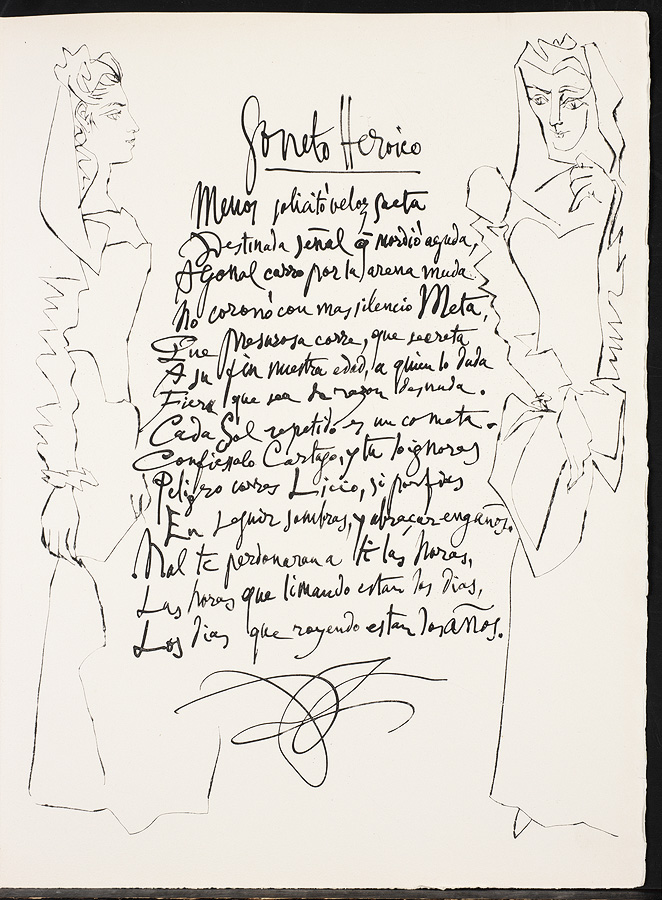 Soneto Heroico
Menos solicitó veloz saeta
Destinada señal q̃ mordió aguda,
Agonal carro por la arena muda
No coronó con mas silencio Meta,
Que Presurosa corre, que secreta
A su fin nuestra edad, a quien lo duda
Fiera que sea de razon desnuda.
Cada Sol repetido es un cometa.
Confiesalo Cartago, y tu lo ignoras
Peligro corres Licio, si porfias
En seguir sombras, y abraçar engaños.
Mal te perdonaran a ti las horas,
Las horas que limando estan los dias,
Los dias que royendo estan los años.